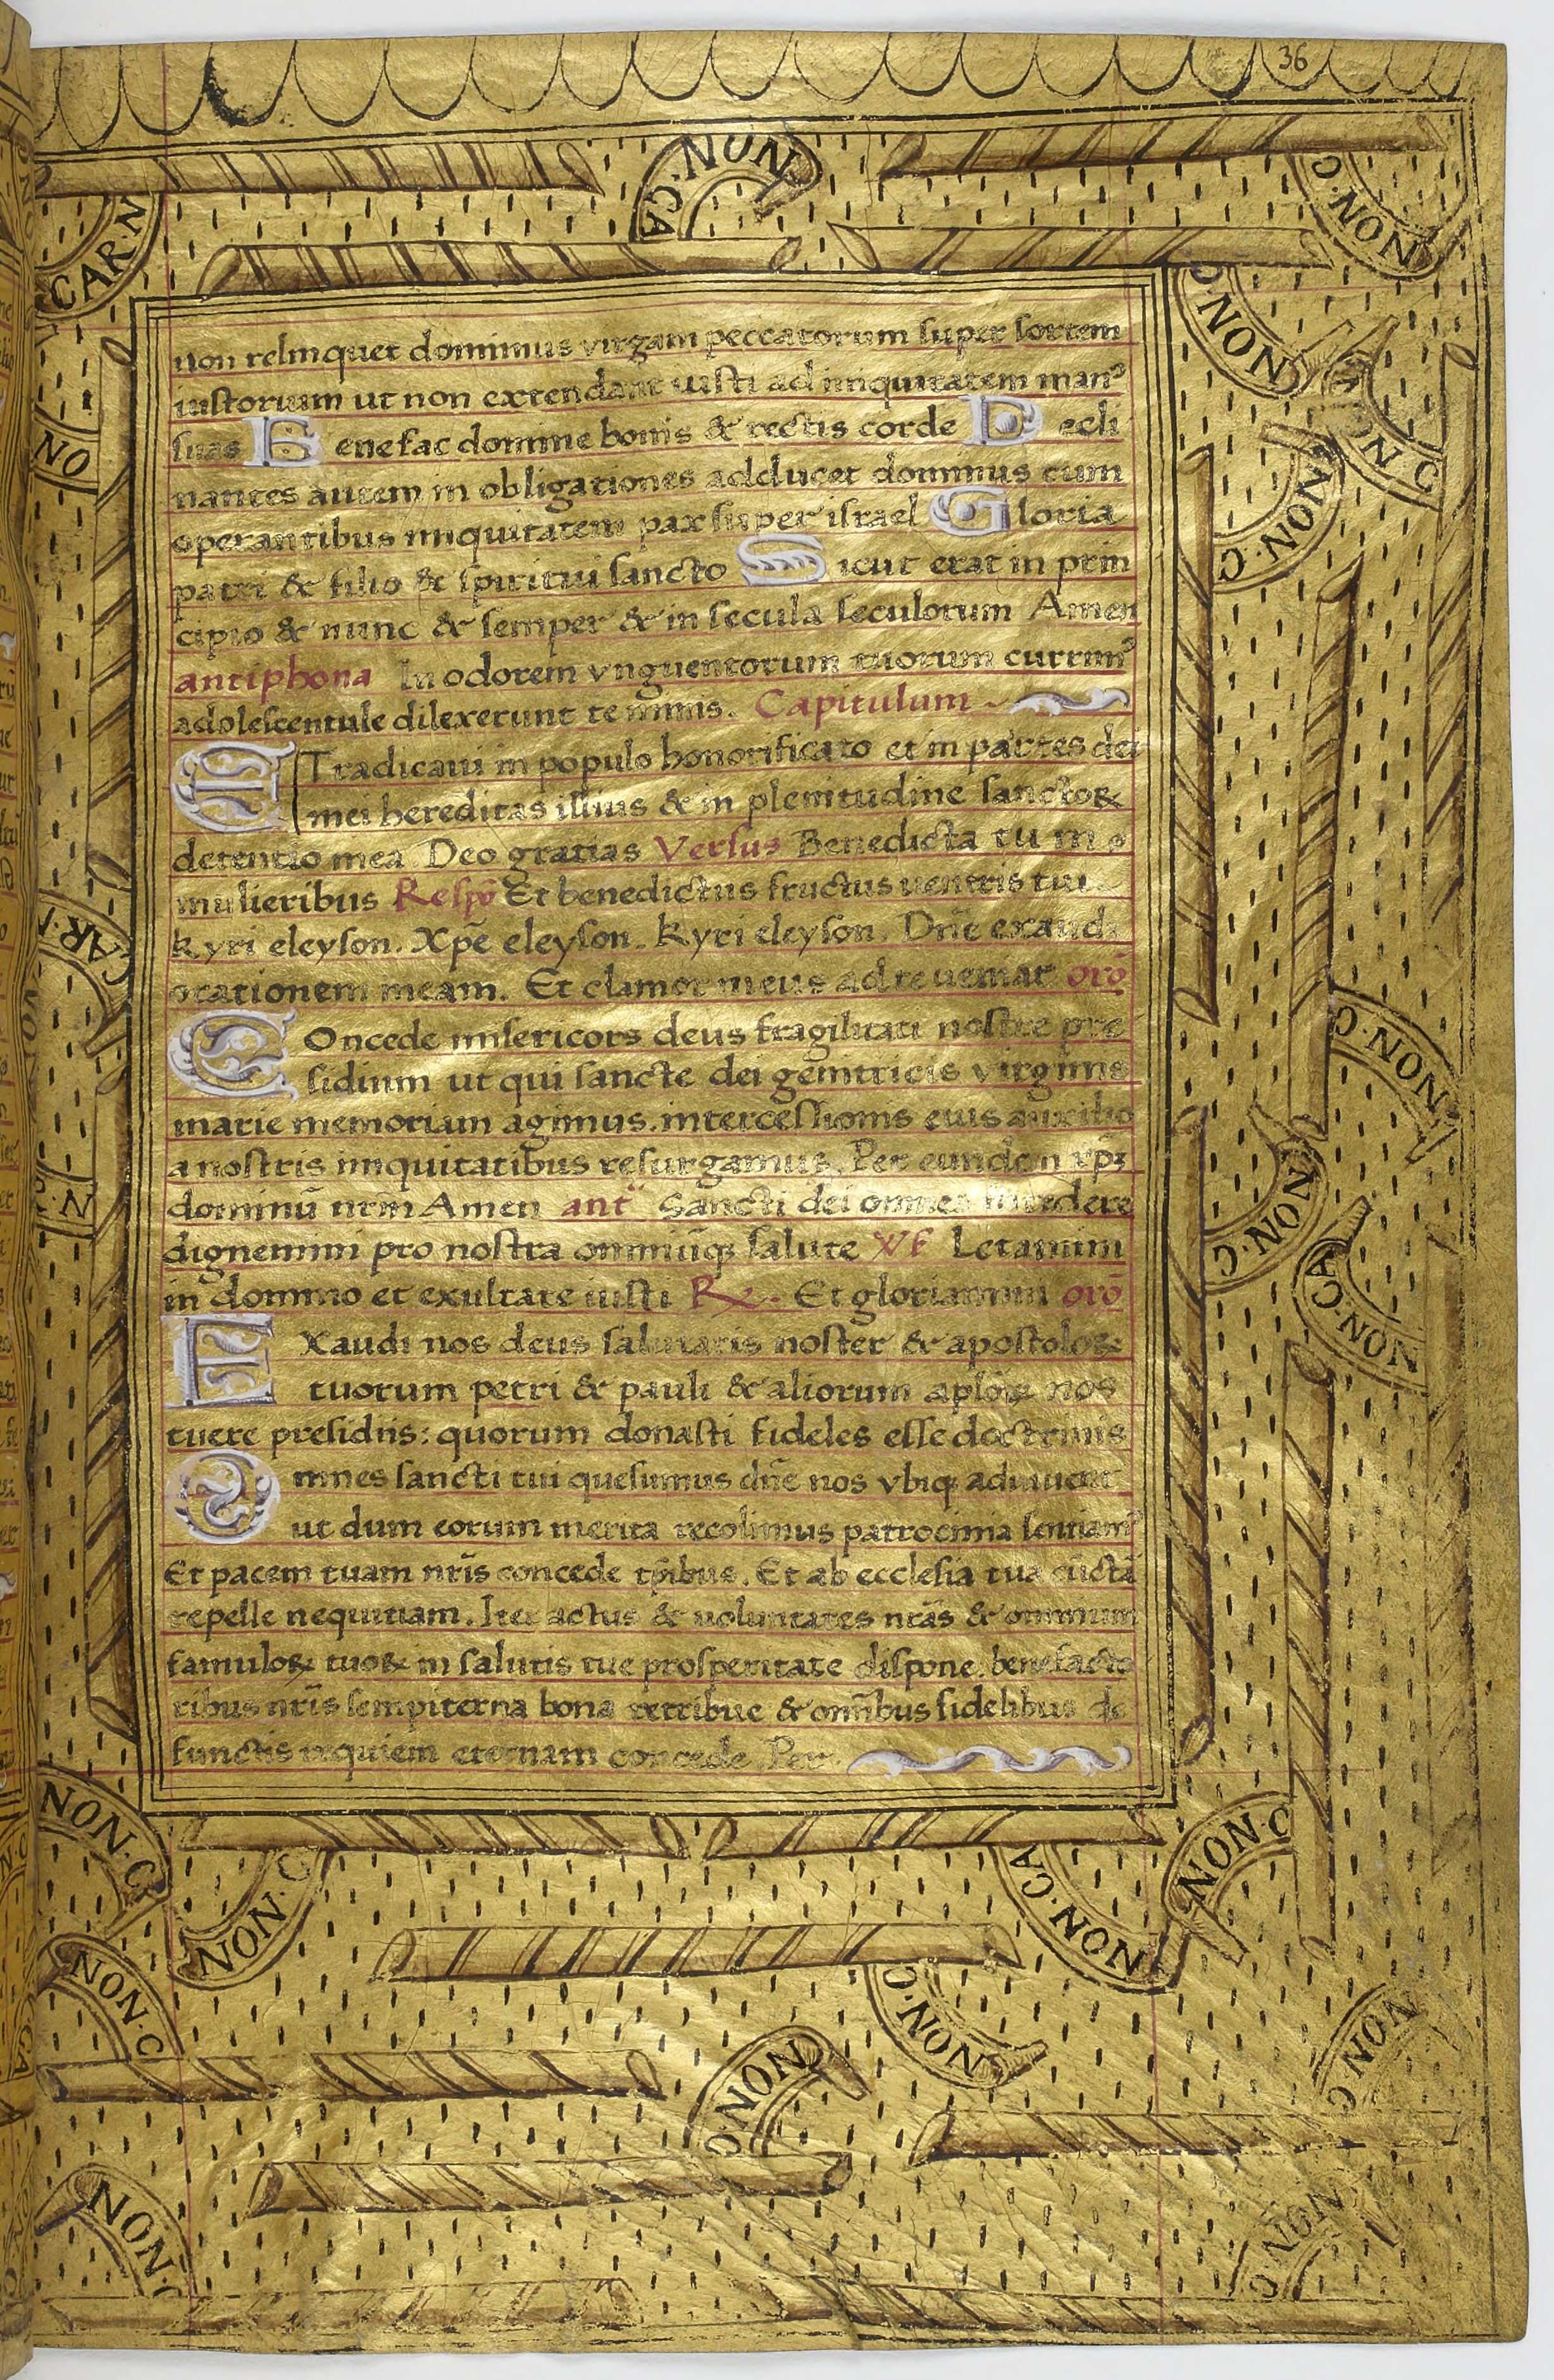 36
non relinquet dominus virgam peccatorum super sortem
iustorum ut non extendant iusti ad iniquitatem manꝰ
suas Benefac domine bonis & rectis corde Decli
nantes autem in obligationes adducet dominus cum
operantibus iniquitatem pax super israel Gloria
patri & filio & spiritui sancto Sicut erat in prin
cipio & nunc & semper & in secula seculorum Amen
antiphona In odorem vnguentorum tuorum currimꝰ
adolescentule dilexerunt te nimis. Capitulum
ETradicaui in populo honorificato et in partes dei
mei hereditas illius & in plenitudine sanctoꝝ
detentio mea Deo gratias Versus Benedicta tu in
mulieribus Respō Et benedictus fructus uentris tui
kyri eleyson. Xp̄e eleyson. kyri eleyson. Dn̄e exaudi
orationem meam. Et clamor meus ad te ueniat orō
COncede misericors deus fragilitati nostre pre
sidium ut qui sancte dei genitricis virginis
marie memoriam agimus. intercessionis eius auxilio
a nostris iniquitatibus resurgamus. Per eundem xp̄ꝫ
dominū nrm̄ Amen ant̄ Sancti dei omnes
dignemini pro nostra omniūqꝫ salute Letamini
in domino et exultate iusti R℞. Et gloriamini orō
EXaudi nos deus salutaris noster & apostoloꝝ
tuorum petri & pauli & aliorum aplōꝝ nos
tuere presidiis: quorum donasti fideles esse doctrinis
Omnes sancti tui quesumus dn̄e nos vbiqꝫ adiuuent
ut dum eorum merita recolimus patrocinia sentiamꝰ
Et pacem tuam nr̄is concede tp̄ibus. Et ab ecclesia tua cūctā
repelle nequitiam. Iter actus & uoluntates nr̄as & omnium
famuloꝝ tuoꝝ in salutis tue prosperitate dispone. benefacto
ribus nr̄is sempiterna bona retribue & omn̄ibus fidelibus de
functis requiem eternam concede Per.
CA·NON
C·NON
CAR·N
C·NON
NON·C
NON·C
NO
CAR·N
C·NON
NON·C
NON·CA
N·
NON·C
NON·C
NON·CA
NON·C
NON·C
NON·C
C·NON
C·NON
NON·C
C·NON